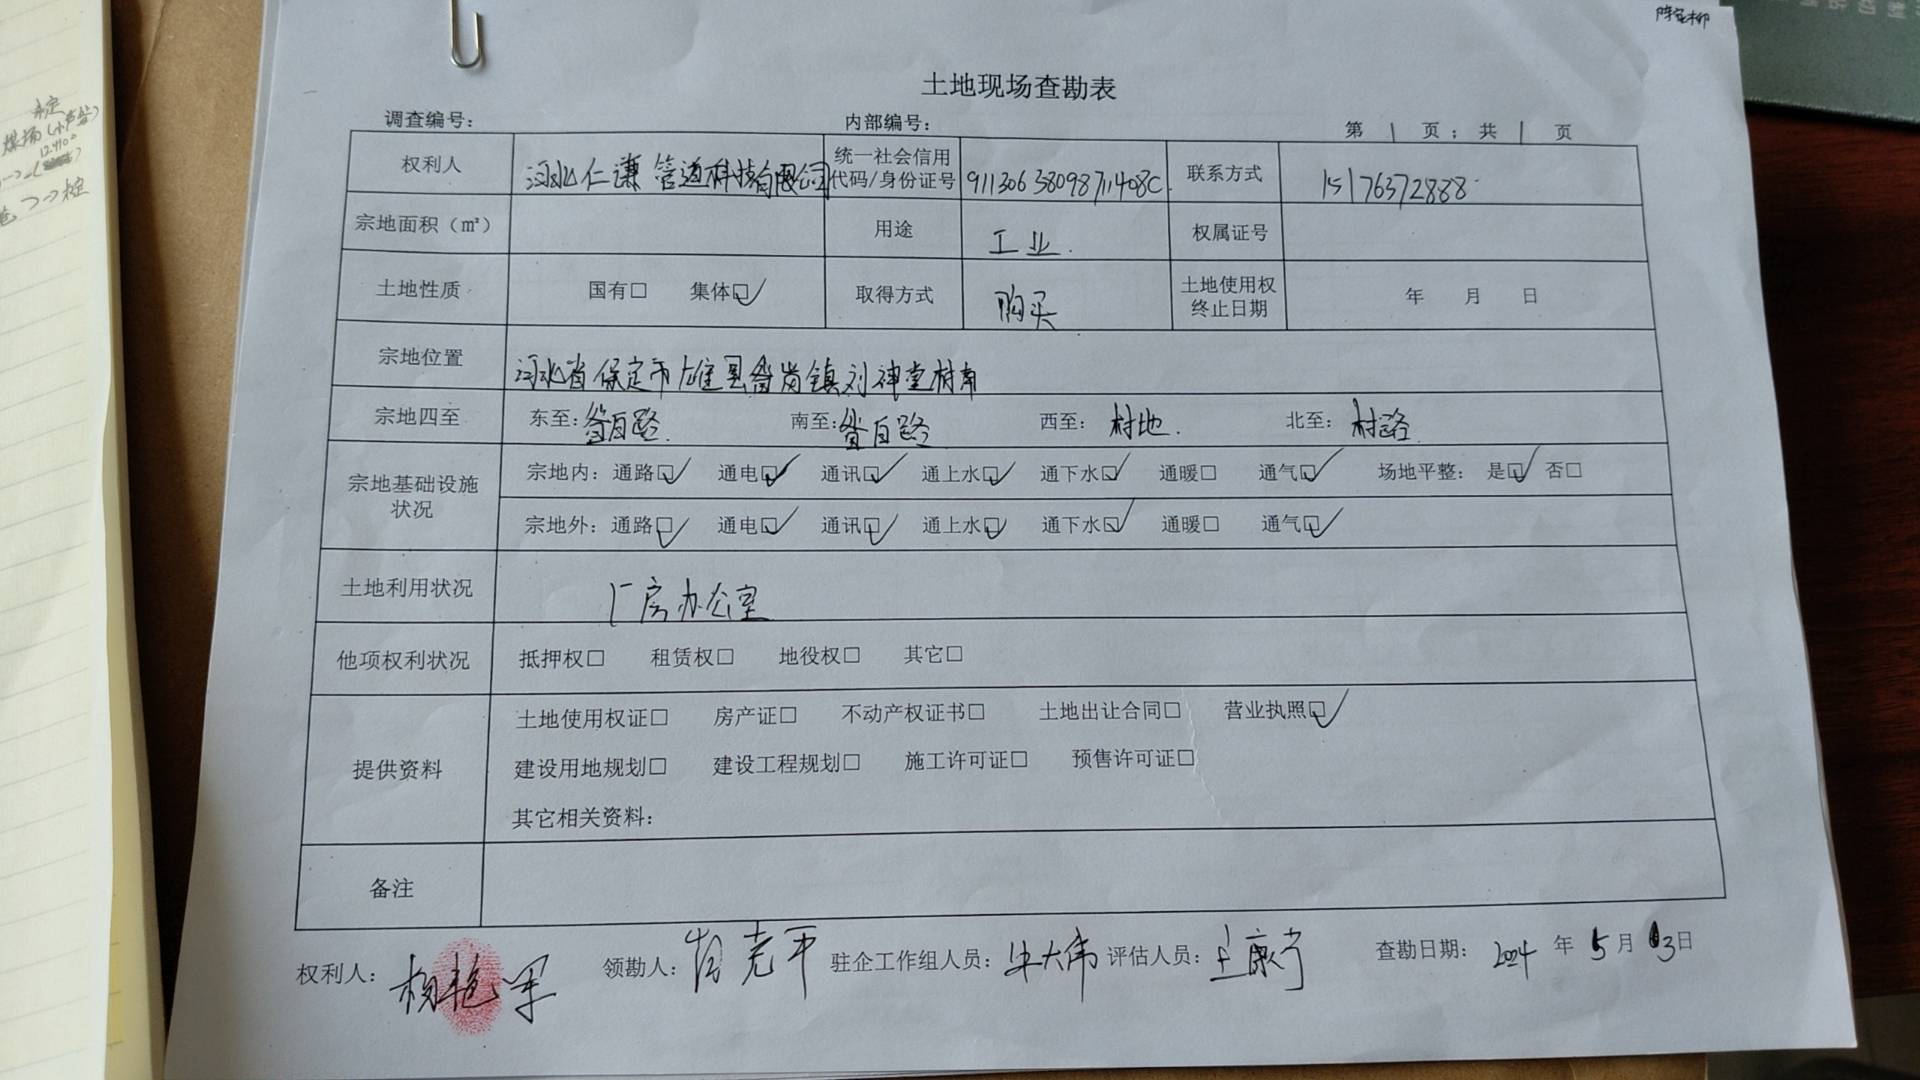 土地现场查勘表
调查编号： 内部编号： 第 1 页；共 1 页
权利人 河北仁谦管道科技有限公司 统一社会信用代码/身份证号 91130638098711408C 联系方式 15176372888
宗地面积（㎡） 用途 工业. 权属证号
土地性质 国有□ 集体☑ 取得方式 购买 土地使用权终止日期 年 月 日
宗地位置 河北省保定市雄县昝岗镇刘神堂村南
宗地四至 东至：昝白路. 南至：昝白路 西至：村地. 北至：村路.
宗地基础设施状况 宗地内：通路☑ 通电☑ 通讯☑ 通上水☑ 通下水☑ 通暖□ 通气☑ 场地平整：是☑ 否□
宗地外：通路☑ 通电☑ 通讯☑ 通上水☑ 通下水☑ 通暖□ 通气☑
土地利用状况 厂房办公室
他项权利状况 抵押权□ 租赁权□ 地役权□ 其它□
提供资料 土地使用权证□ 房产证□ 不动产权证书□ 土地出让合同□ 营业执照☑
建设用地规划□ 建设工程规划□ 施工许可证□ 预售许可证□
其它相关资料：
备注
权利人：杨艳军 领勘人： 驻企工作组人员： 评估人员： 查勘日期：2024 年 5 月 13日